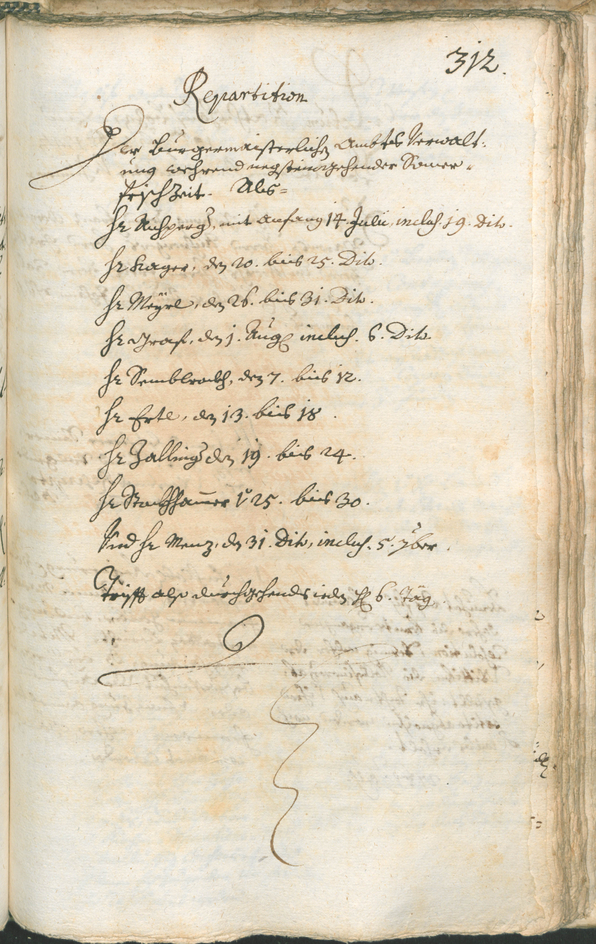 312.
Repartition
Der Burgermaisterlichen Ambts Verwalt-
ung wehrend negsteingehender Somer-
frisch Zeit. Als=
Hr Aichperg, mit anfang 14. Julii, inclus. 19. Dito.
Hr Kager, den 20. biis 25. Dito.
Hr Meyrl, den 26. biis 31. Dito.
Hr Graf, den 1. Aug inclus. 6. Dito
Hr Semblrockh, den 7. biis 12.
Hr Ertl, den 13. biis 18.
Hr Zalling den 19. biis 24.
Hr 25. biis 30.
Und Hr Menz, den 31. Dito, inclus. 5. 7ber.
Trifft also durchgehends ieden H 6. Täg